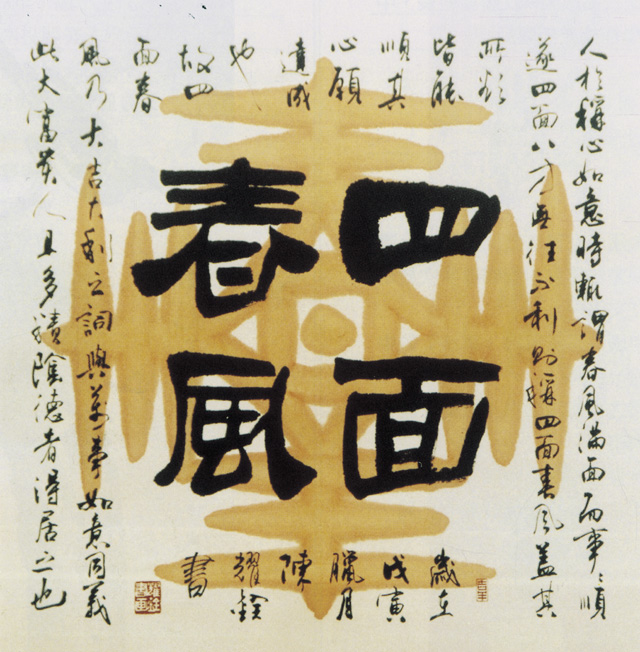 四面
春風
人於稱心如意時輒謂春風滿面而事々順
遂四面八方無往不利則稱四面春風蓋其
所欲
皆能
順其
心願
達成
也
故四
面春
風乃大吉大利之詞與萬事如意同義
此大富貴人且多積陰德者得居之也
歲在
戊寅
臘月
陳
耀銓
書